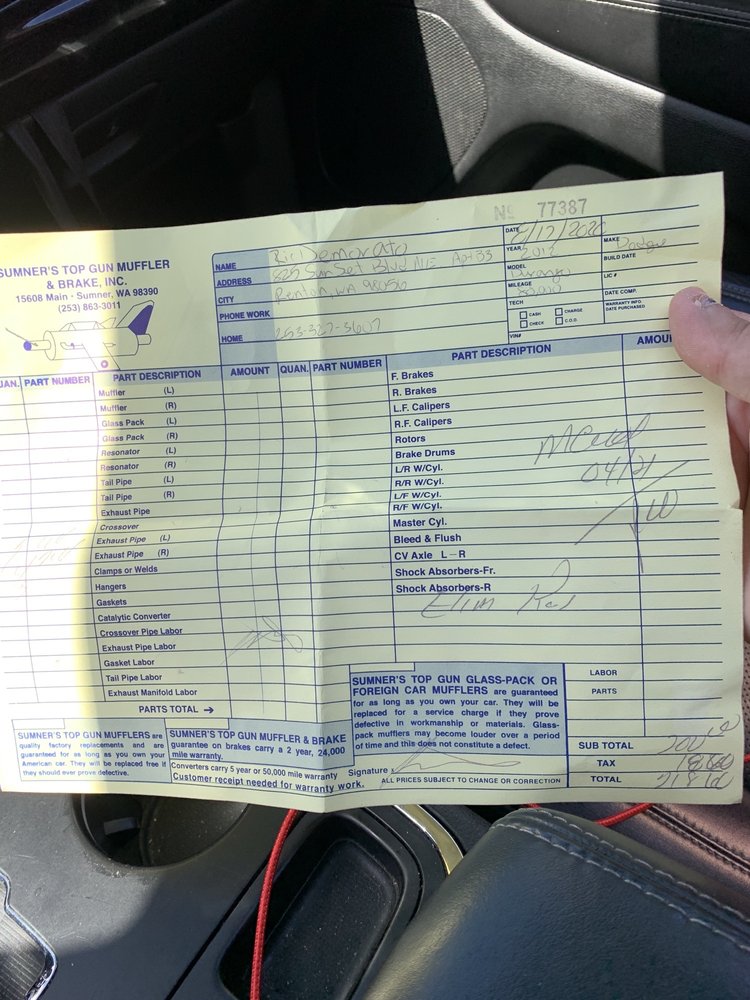 Nº 77387
SUMNER'S TOP GUN MUFFLER
& BRAKE, INC.
15608 Main · Sumner, WA 98390
(253) 863-3011
NAME
ADDRESS Sunset Blvd NE Apt 33
CITY Renton, WA 98056
PHONE WORK
HOME 253-327-3607
DATE /12/2020
YEAR 2012
MAKE Dodge
MODEL Durango
BUILD DATE
MILEAGE
LIC #
TECH
DATE COMP.
CASH CHARGE
CHECK C.O.D.
WARRANTY INFO.
DATE PURCHASED.
VIN#
QUAN. PART NUMBER PART DESCRIPTION AMOUNT QUAN. PART NUMBER PART DESCRIPTION AMOU
Muffler (L)
Muffler (R)
Glass Pack (L)
Glass Pack (R)
Resonator (L)
Resonator (R)
Tail Pipe (L)
Tail Pipe (R)
Exhaust Pipe
Crossover
Exhaust Pipe (L)
Exhaust Pipe (R)
Clamps or Welds
Hangers
Gaskets
Catalytic Converter
Crossover Pipe Labor
Exhaust Pipe Labor
Gasket Labor
Tail Pipe Labor
Exhaust Manifold Labor
PARTS TOTAL →
F. Brakes
R. Brakes
L.F. Calipers
R.F. Calipers
Rotors
Brake Drums
L/R W/Cyl.
R/R W/Cyl.
L/F W/Cyl.
R/F W/Cyl.
Master Cyl.
Bleed & Flush
CV Axle L – R
Shock Absorbers-Fr.
Shock Absorbers-R
04/21
SUMNER'S TOP GUN MUFFLERS are
quality factory replacements and are
guaranteed for as long as you own your
American car. They will be replaced free if
they should ever prove defective.
SUMNER'S TOP GUN MUFFLER & BRAKE
guarantee on brakes carry a 2 year, 24,000
mile warranty.
Converters carry 5 year or 50,000 mile warranty
Customer receipt needed for warranty work.
SUMNER'S TOP GUN GLASS-PACK OR
FOREIGN CAR MUFFLERS are guaranteed
for as long as you own your car. They will be
replaced for a service charge if they prove
defective in workmanship or materials. Glass-
pack mufflers may become louder over a period
of time and this does not constitute a defect.
Signature
ALL PRICES SUBJECT TO CHANGE OR CORRECTION
LABOR
PARTS
SUB TOTAL
TAX
TOTAL